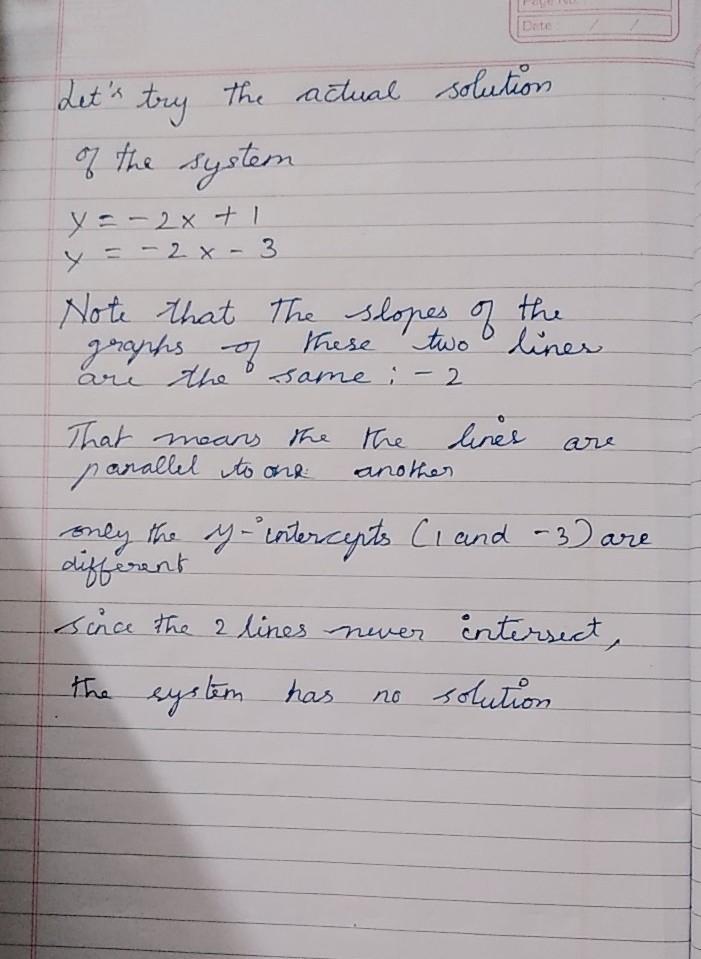 Page No.
Date / /
Let's try the actual solution
of the system
y = -2x + 1
y = -2x - 3
Note that The slopes of the
graphs of these two lines
are the same : -2
That means the the lines are
parallel to one another
only the y-intercepts (1 and -3) are
different
since the 2 lines never intersect,
the system has no solution